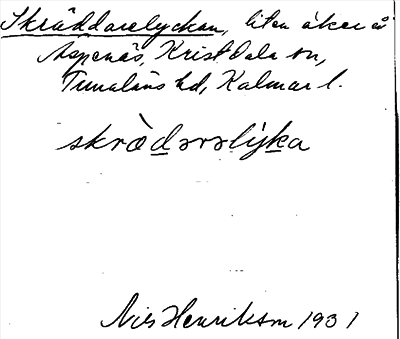 Skräddarelyckan, liten åker å
Aspenäs, Kristdala sn,
Tunaläns hd, Kalmar l.
skrä̀dərəlýka
Nils Henrikson 1931